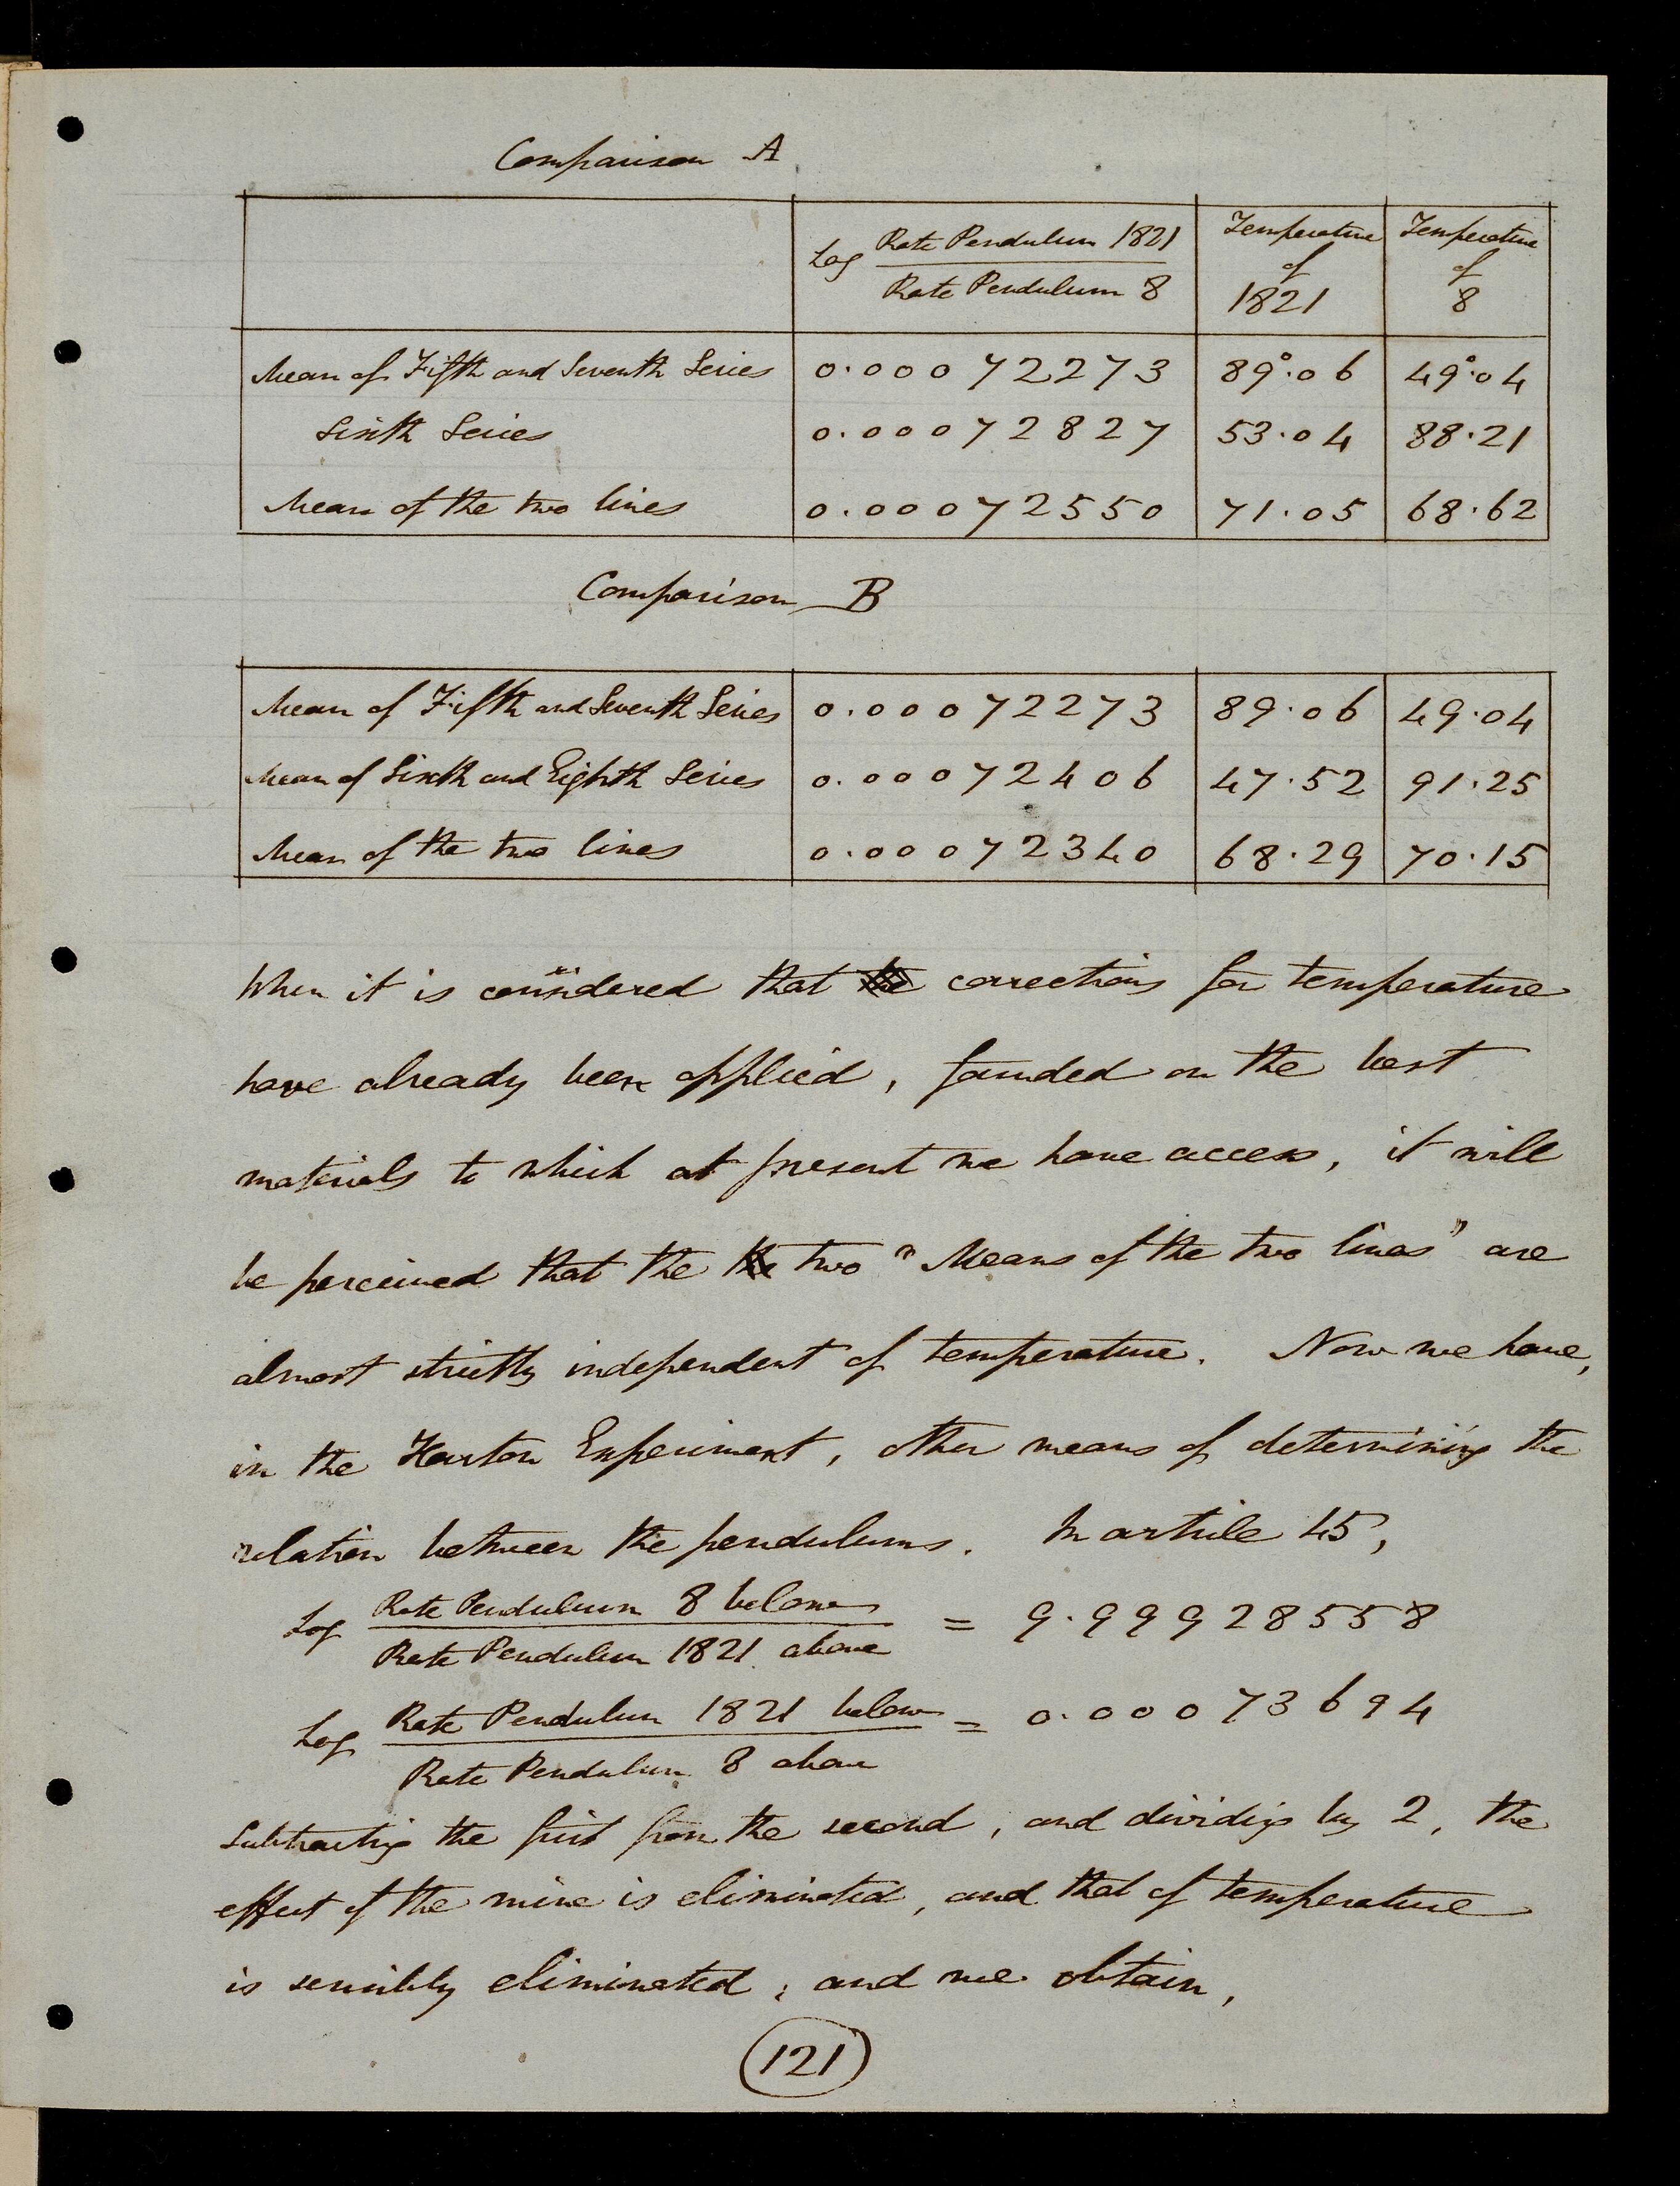 Comparison A
Log Rate Pendulum 1821 / Rate Pendulum 8 | Temperature of 1821 | Temperature of 8
Mean of Fifth and Seventh Series | 0.00072273 | 89°.06 | 49°.04
Sixth Series | 0.00072827 | 53.04 | 88.21
Mean of the two lines | 0.00072550 | 71.05 | 68.62
Comparison B
Mean of Fifth and Seventh Series | 0.00072273 | 89.06 | 49.04
Mean of Sixth and Eighth Series | 0.00072406 | 47.52 | 91.25
Mean of the two lines | 0.00072340 | 68.29 | 70.15
When it is considered that corrections for temperature
have already been applied, founded on the best
materials to which at present we have access, it will
be perceived that the two "Means of the two lines" are
almost strictly independent of temperature. Now we have,
in the Harton Experiment, other means of determining the
relation between the pendulums. In article 45,
Log Rate Pendulum 8 below / Rate Pendulum 1821 above = 9.99928558
Log Rate Pendulum 1821 below / Rate Pendulum 8 above = 0.00073694
Subtracting the first from the second, and dividing by 2, the
effect of the mine is eliminated, and that of temperature
is sensibly eliminated; and we obtain,
121